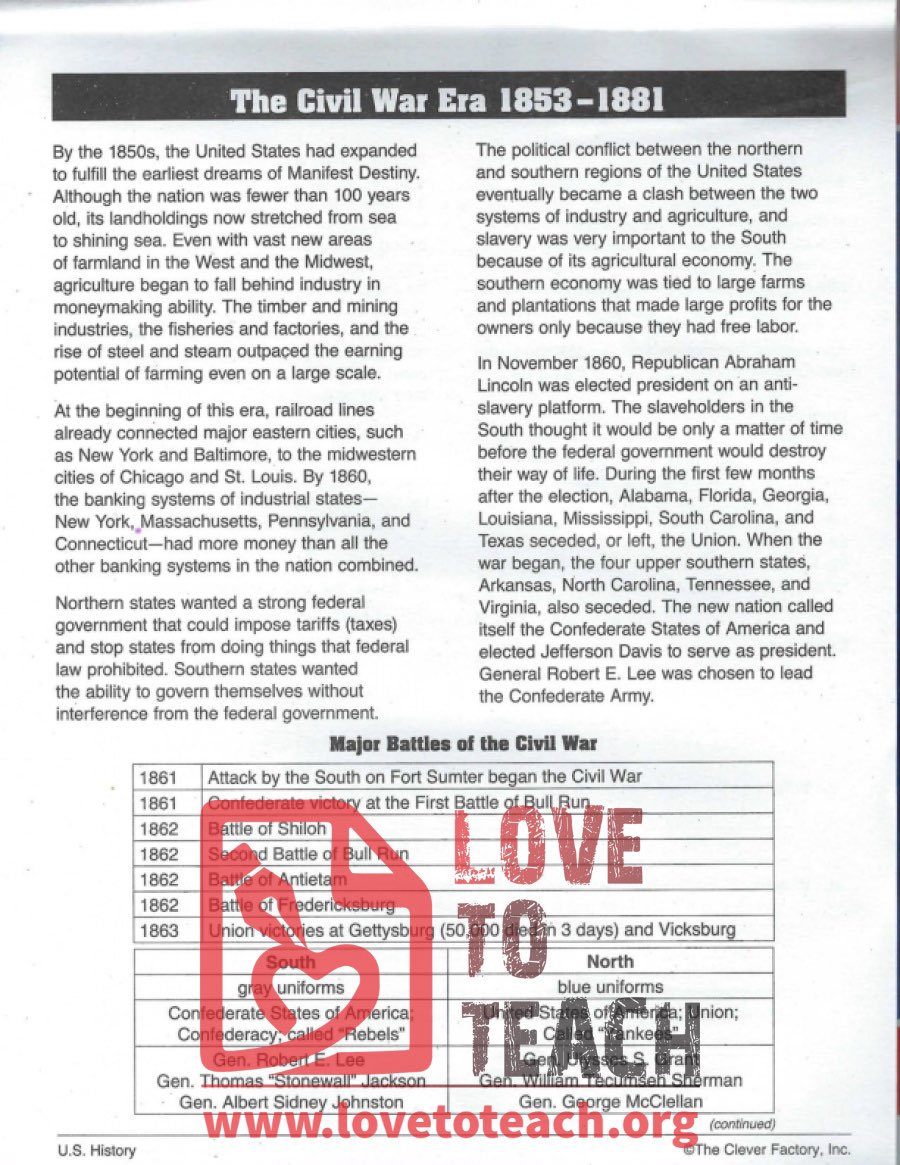 The Civil War Era 1853–1881
By the 1850s, the United States had expanded
to fulfill the earliest dreams of Manifest Destiny.
Although the nation was fewer than 100 years
old, its landholdings now stretched from sea
to shining sea. Even with vast new areas
of farmland in the West and the Midwest,
agriculture began to fall behind industry in
moneymaking ability. The timber and mining
industries, the fisheries and factories, and the
rise of steel and steam outpaced the earning
potential of farming even on a large scale.
At the beginning of this era, railroad lines
already connected major eastern cities, such
as New York and Baltimore, to the midwestern
cities of Chicago and St. Louis. By 1860,
the banking systems of industrial states—
New York, Massachusetts, Pennsylvania, and
Connecticut—had more money than all the
other banking systems in the nation combined.
Northern states wanted a strong federal
government that could impose tariffs (taxes)
and stop states from doing things that federal
law prohibited. Southern states wanted
the ability to govern themselves without
interference from the federal government.
The political conflict between the northern
and southern regions of the United States
eventually became a clash between the two
systems of industry and agriculture, and
slavery was very important to the South
because of its agricultural economy. The
southern economy was tied to large farms
and plantations that made large profits for the
owners only because they had free labor.
In November 1860, Republican Abraham
Lincoln was elected president on an anti-
slavery platform. The slaveholders in the
South thought it would be only a matter of time
before the federal government would destroy
their way of life. During the first few months
after the election, Alabama, Florida, Georgia,
Louisiana, Mississippi, South Carolina, and
Texas seceded, or left, the Union. When the
war began, the four upper southern states,
Arkansas, North Carolina, Tennessee, and
Virginia, also seceded. The new nation called
itself the Confederate States of America and
elected Jefferson Davis to serve as president.
General Robert E. Lee was chosen to lead
the Confederate Army.
Major Battles of the Civil War
1861 Attack by the South on Fort Sumter began the Civil War
1861 Confederate victory at the First Battle of Bull Run
1862 Battle of Shiloh
1862 Second Battle of Bull Run
1862 Battle of Antietam
1862 Battle of Fredericksburg
1863 Union victories at Gettysburg (50,000 died in 3 days) and Vicksburg
South North
gray uniforms blue uniforms
Confederate States of America; United States of America; Union;
Confederacy; called "Rebels" Called "Yankees"
Gen. Robert E. Lee Gen. Ulysses S. Grant
Gen. Thomas "Stonewall" Jackson Gen. William Tecumseh Sherman
Gen. Albert Sidney Johnston Gen. George McClellan
LOVE
TO
TEACH
www.lovetoteach.org
(continued)
U.S. History ©The Clever Factory, Inc.